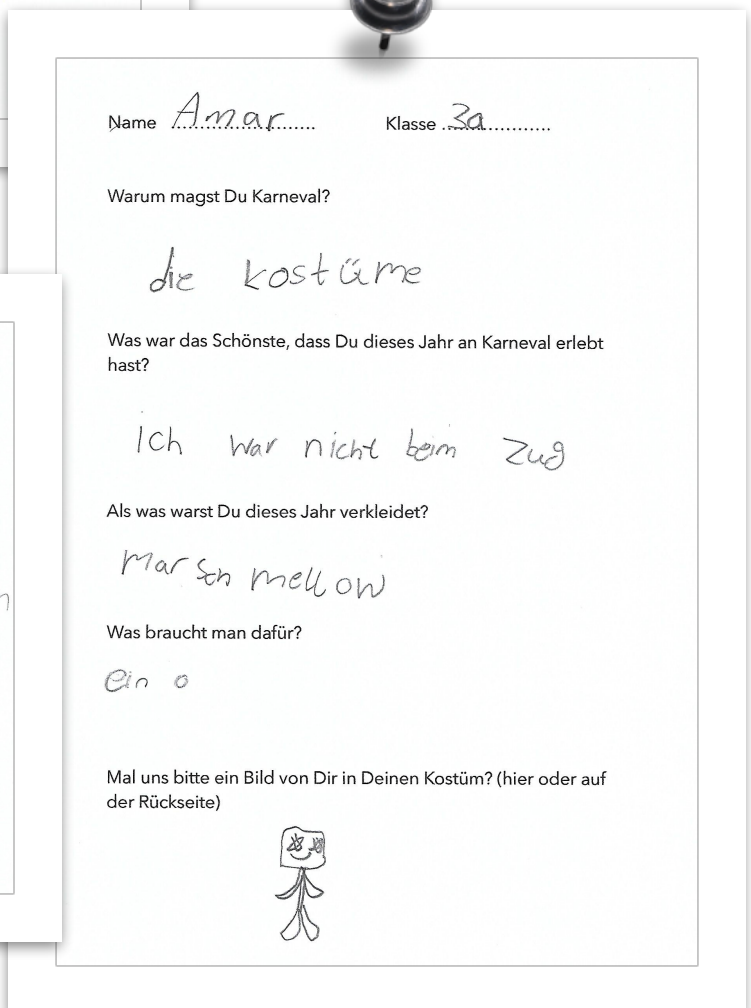 Name Amar Klasse 3a
Warum magst Du Karneval?
die kostüme
Was war das Schönste, dass Du dieses Jahr an Karneval erlebt
hast?
Ich war nicht beim Zug
Als was warst Du dieses Jahr verkleidet?
Marschmellow
Was braucht man dafür?
ein o
Mal uns bitte ein Bild von Dir in Deinen Kostüm? (hier oder auf
der Rückseite)